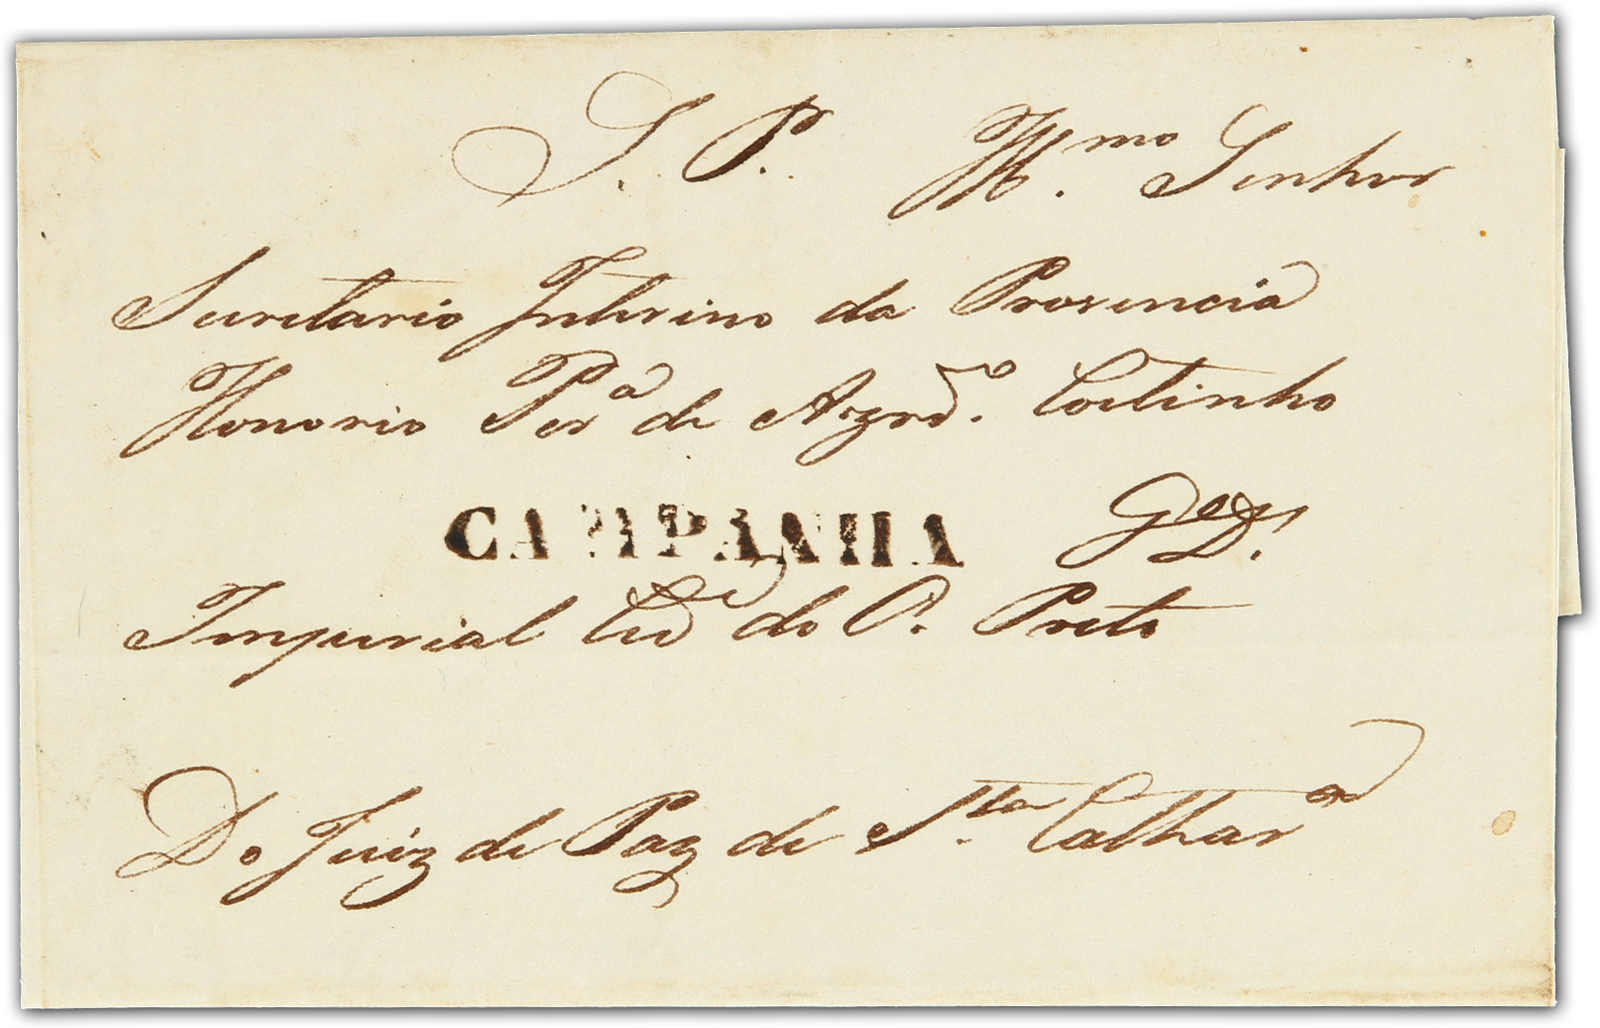 S. P. Illmo. Senhor
Secretario Interino da Provincia
Honorio Pera de Azrdo. Coitinho
CAMPANHA Ge D.
Imperial Cide do O. Preto
Do Juiz de Paz de Sta. Catharа